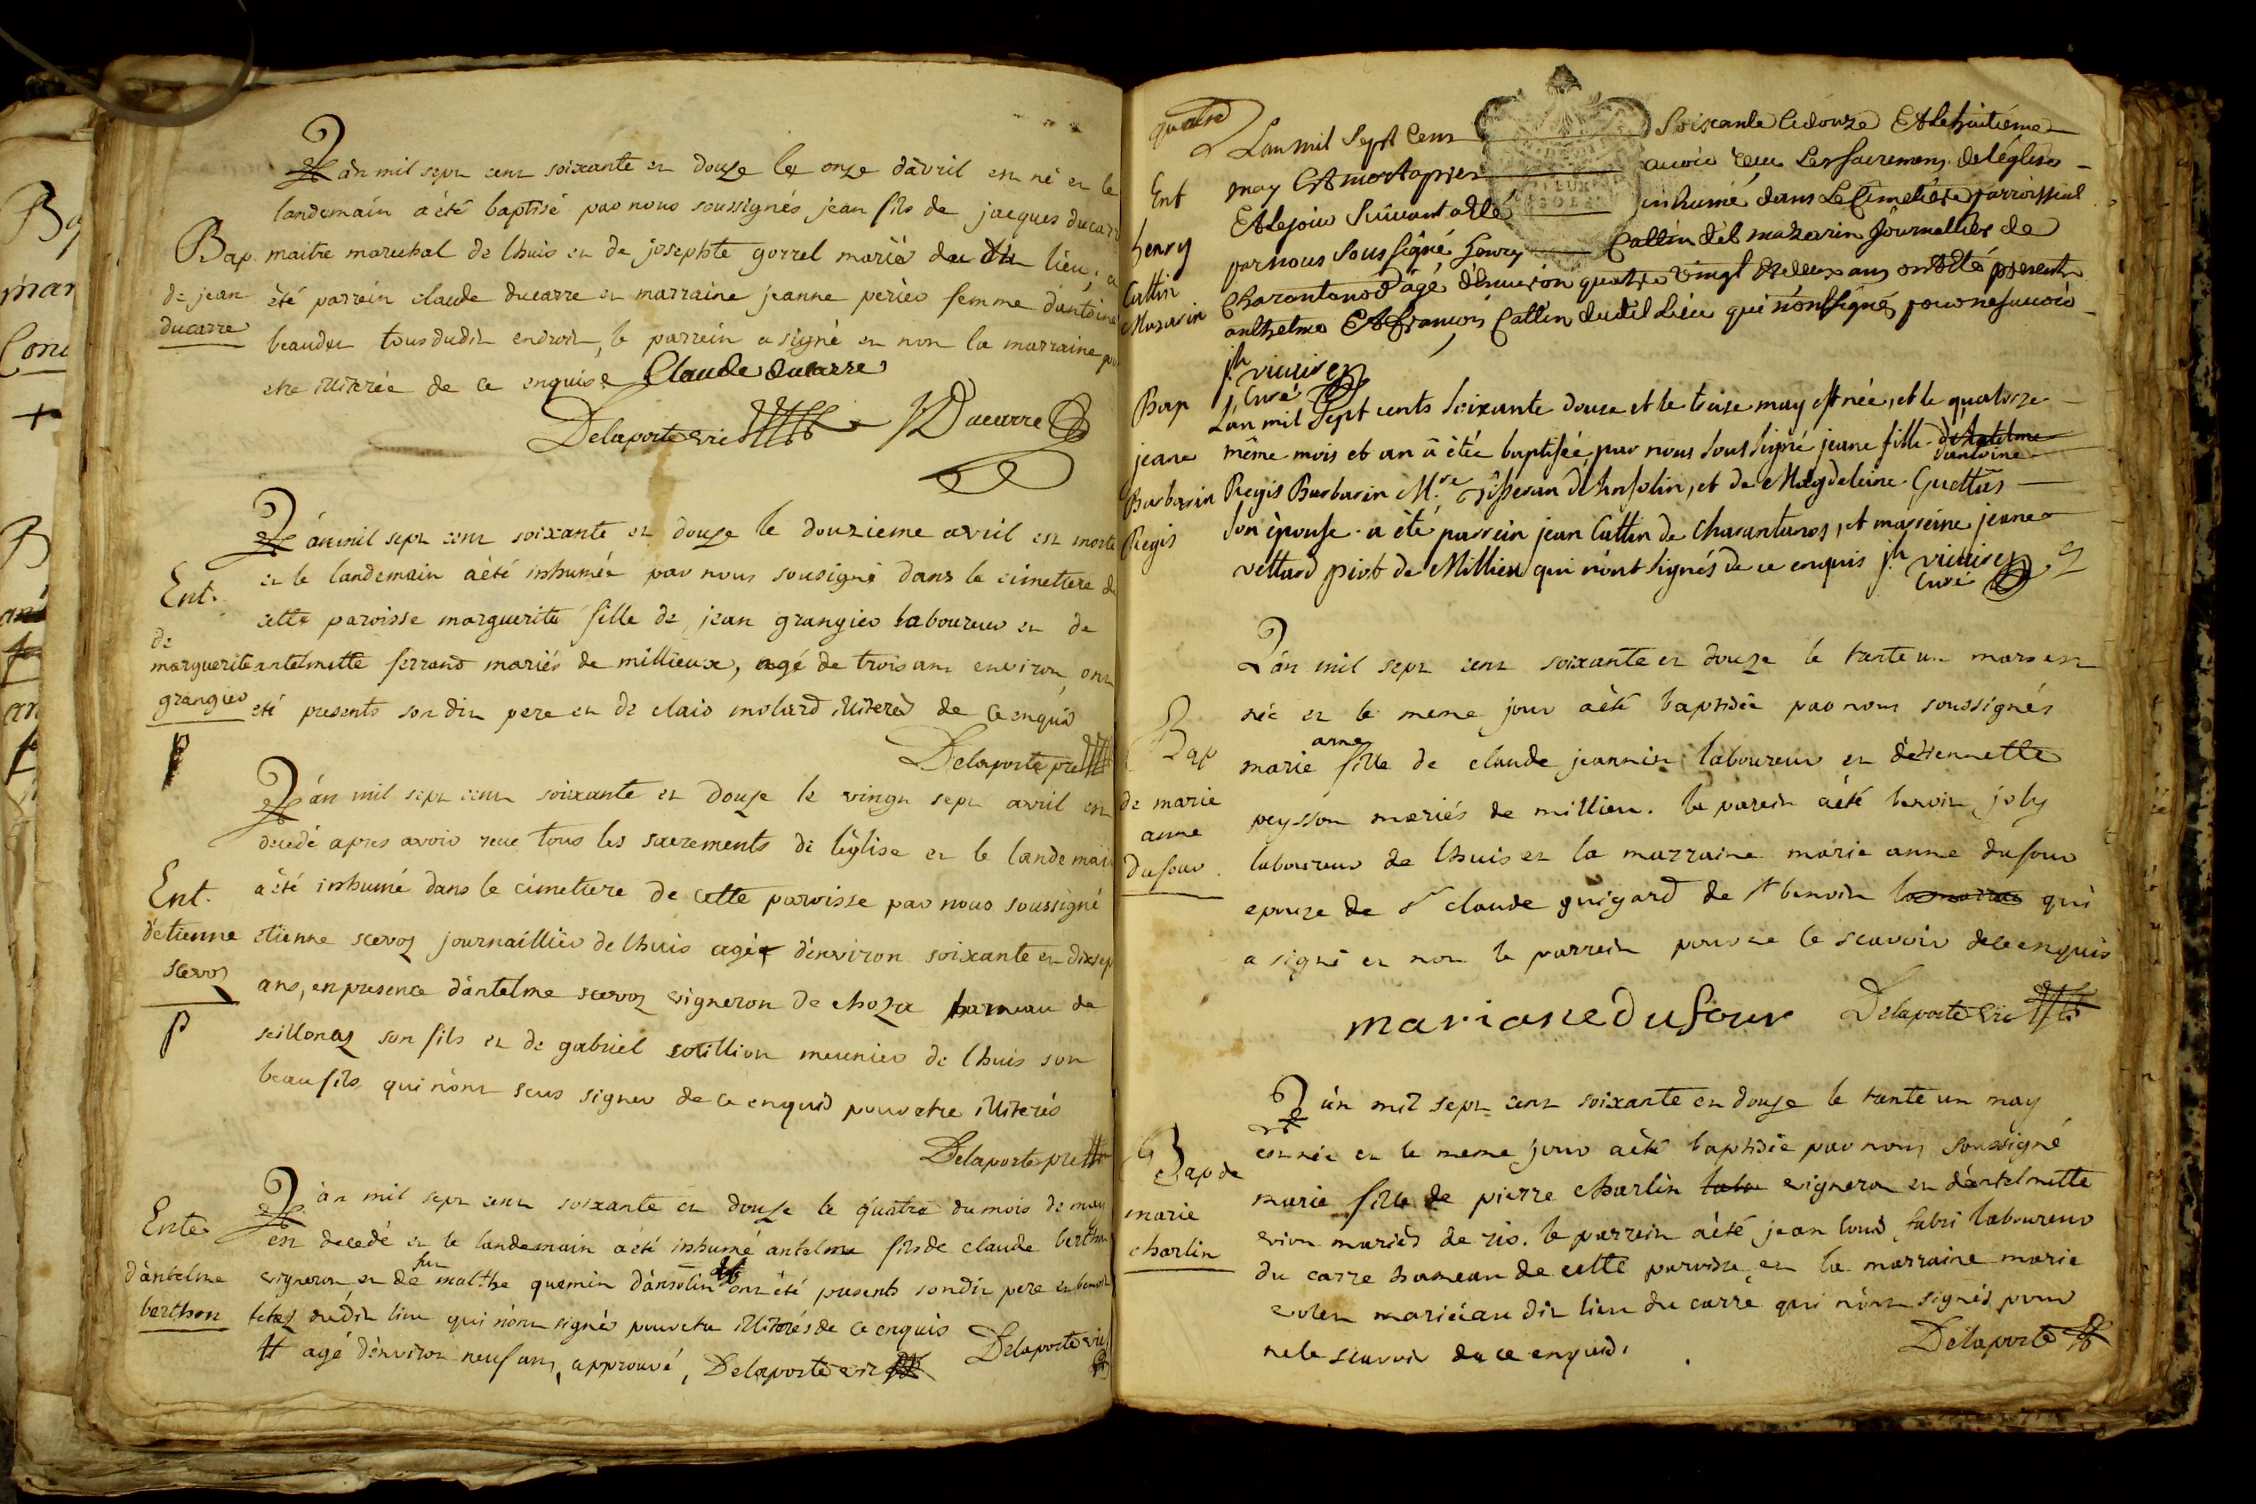 L'an mil sept cent soixante et douze le onze d'avril est né et le
landemain a été baptisé par nous soussignés jean fils de jacques ducarre
Bap. maitre marechal de lhuis et de josephte gorrel mariés du dit lieu, a
de jean été parrein claude ducarre et marraine jeanne perier femme d'antoine
ducarre beaudet tous dudit endroit, le parrein a signé et non la marraine pour
etre illiterée de ce enquise Claude ducarre
Delaporte vic JDucarre
L'an mil sept cent soixante et douze le douzieme avril est morte
et le landemain a été inhumée par nous sousigné dans le cimetiere de
Ent. cette paroisse marguerite fille de jean grangier laboureur et de
de
marguerite antelmette ferrand mariés de millieux, agé de trois ans environ, ont
grangier eté presents son dit pere et de clais molard illiterés de ce enquis
Delaporte pre
L'an mil sept cent soixante et douze le vingt sept avril est
decedé apres avoir reçu tous les sacrements de l'église et le landemain
Ent. a été inhumé dans le cimetiere de cette paroisse par nous soussigné
d'etienne etienne scevoz journaillier de lhuis agé d'environ soixante et dixsept
scevoz ans, en presence d'antelme scevoz vigneron de choza hameau de
P seillonaz son fils et de gabriel meunier de lhuis son
beaufils qui n'ont sceus signer de ce enquis pour etre illiterés
Delaporte pre
L'an mil sept cent soixante et douze le quatre du mois de may
Ent. est decedé et le landemain a été inhumé antelme fils de claude berthon
d'antelme vigneron, et de fut malthe quemin d'ansolin ont été presents son dit pere et benoit
berthon dudit lieu qui n'ont signés pour etre illiterés de ce enquis
# agé d'environ neuf ans, approuvé, Delaporte vic Delaporte vic
L'an mil Sept Cent Soixante et douze Et le huitiéme
Ent may Est mort aprier avoir reçu Les sacremens de léglise
henry Et le jour Suivant a été inhumé dans Le Cimetiére parroissial
Cattin par nous sous signé henry Cattin dit mazarin Journallier de
Mazarin Charantanod âgé d'environ quatre vingt et deux ans ont été present
anthelme Et françois Cattin dudit Lieu qui n'ont signés pour ne sçavoir
jh vuiiter
Curé
Bap L'an mil Sept cents soixante douze et le treize may est née, et le quatorze
jeane même mois et an a étée baptisée par nous sous signé jeane fille d'antoine
Barbarin Regis Barbarin M.re Tisseran d'Ansolin, et de Magdeleine Guettas
Regis son épouse. a été parrein jean Cattin de Charantanos, et marreine jeane
vettard piot de Millieu qui n'ont signés de ce enquis jh vuiiter
Curé
L'an mil sept cent soixante et douze le trente un mars est
née et le meme jour a été baptisée par nous soussignés
Bap marie anne fille de claude jeannin laboureur et d'etiennette
de marie peysson mariés de millieu. le parein a été benoit joly
anne laboureur de lhuis et la marraine marie anne dufour
Dufour. epouze de sr claude guigard de st benoit qui
a signé et non le parrein pour ne le scavoir de ce enquis
marianedufour Delaporte vic
L'an mil sept cent soixante et douze le trente un may
est née et le meme jour a été baptisée par nous soussigné
Bap de marie fille de pierre charlin vigneron et d'antelmette
marie mariés de rix. le parrein a été jean louis fabri laboureur
charlin du carre hameau de cette paroisse, et la marraine marie
mariée au dit lieu du carre qui n'ont signés pour
ne le scavoir de ce enquis. Delaporte